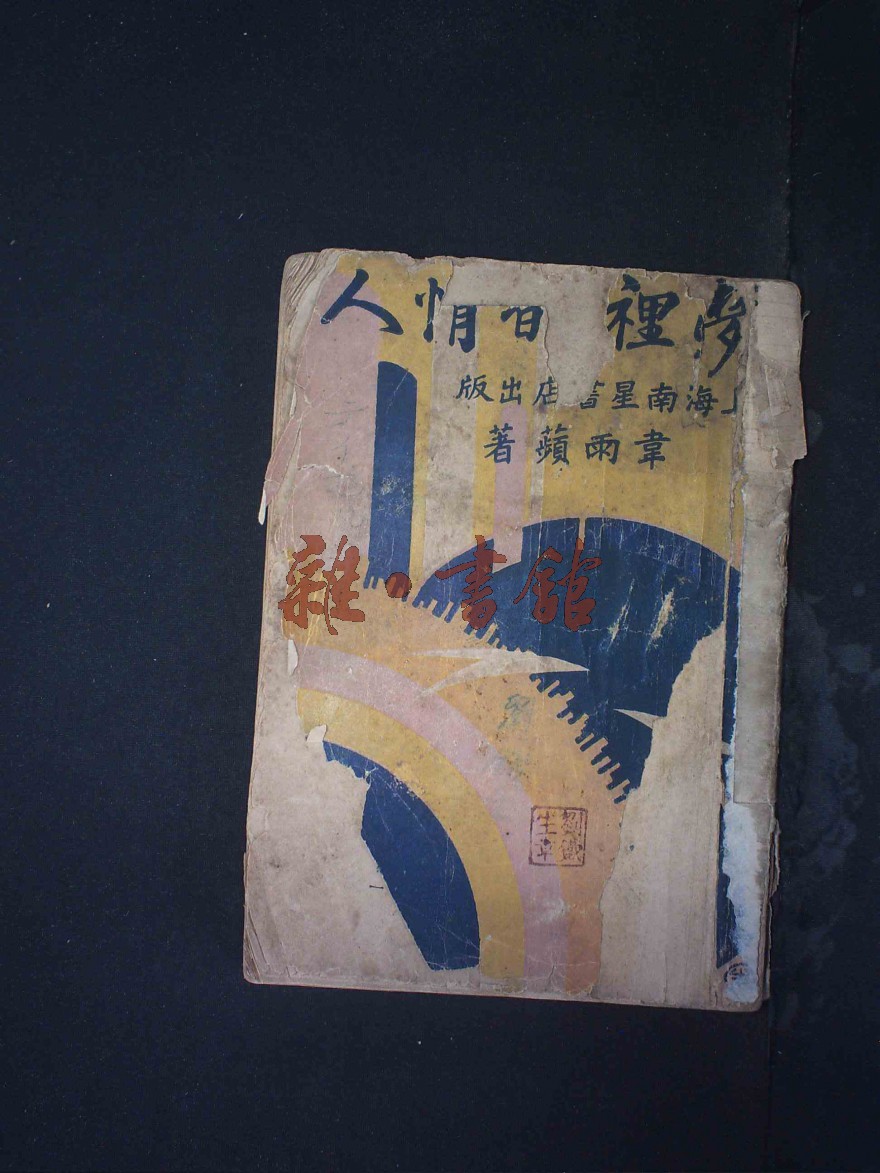 夢裡情人
上海南星書店出版
韋雨蘋著
雜·書館
劉鐵
生章